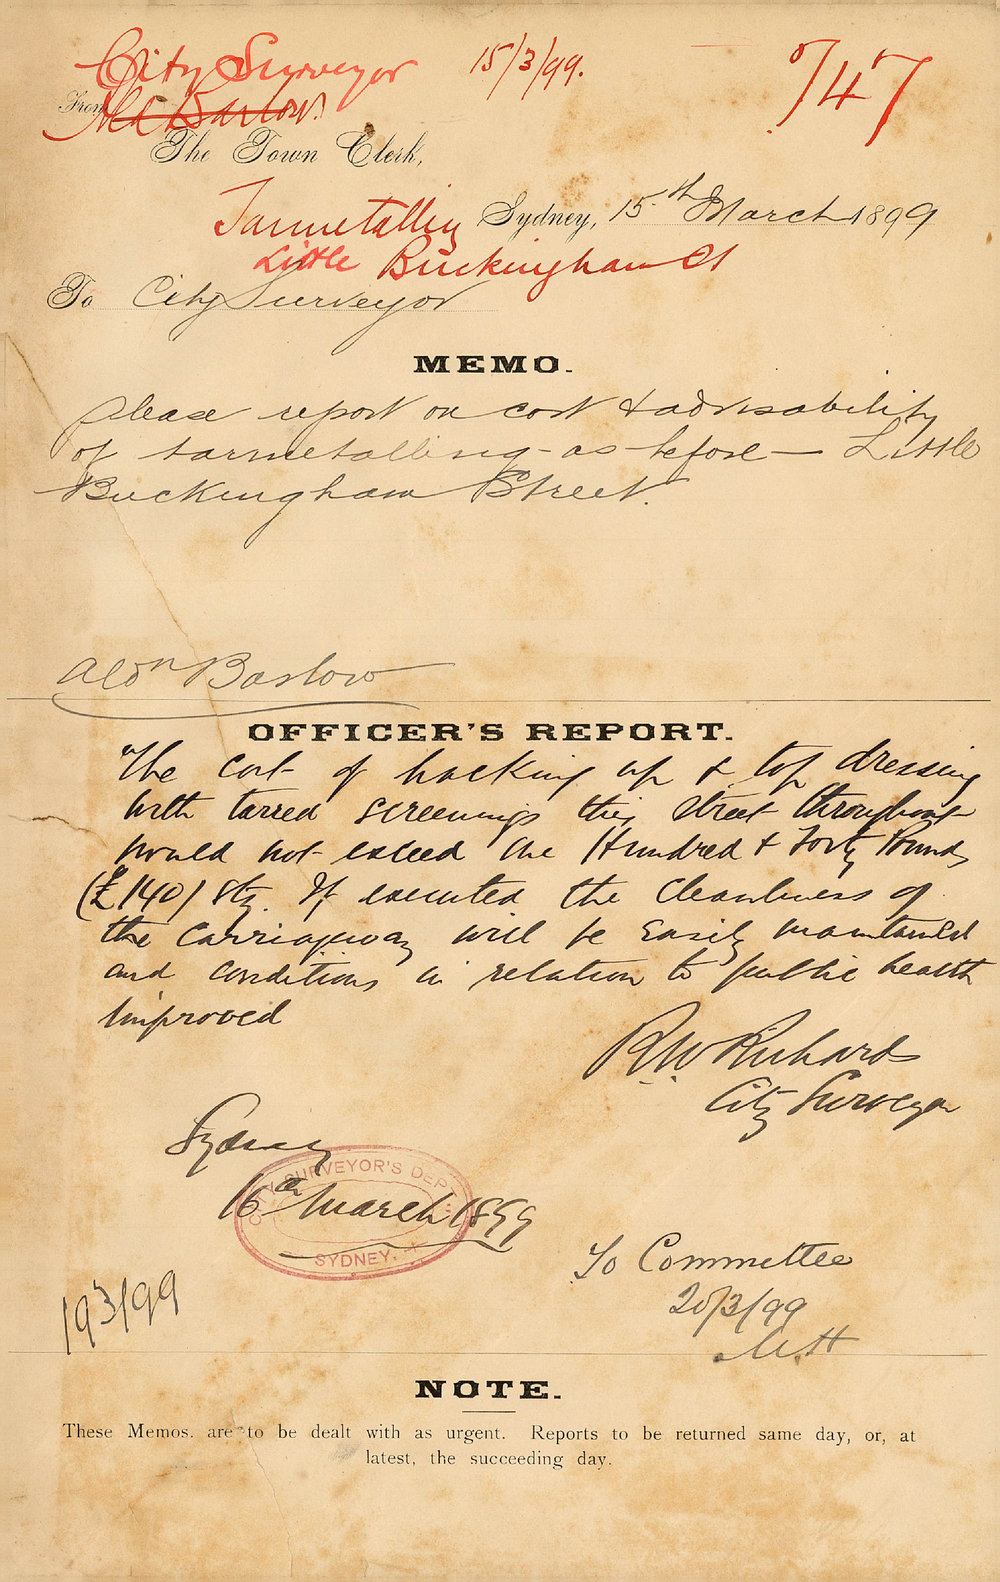 City Surveyor 15/3/99. 747
From Ald Barlow.
The Town Clerk,
Tarmetallin Sydney, 15th March 1899
Little Buckingham St
To City Surveyor
MEMO.
Please report on cost & advisability
of tarmetalling - as before - Little
Buckingham Street.
Aldn Barlow
OFFICER'S REPORT.
The cost of hacking up & top dressing
with tarred screenings this street throughout
would not exceed One Hundred & Forty Pounds
(£140) Stg. If executed the cleanliness of
the carriageway will be easily maintained
and conditions in relation to public health
improved
R.W Richards
City Surveyor
Sydney
16th March 1899
CITY SURVEYOR'S DEPT
SYDNEY.
To Committee
20/3/99
193/99
NOTE.
These Memos. are to be dealt with as urgent. Reports to be returned same day, or, at
latest, the succeeding day.